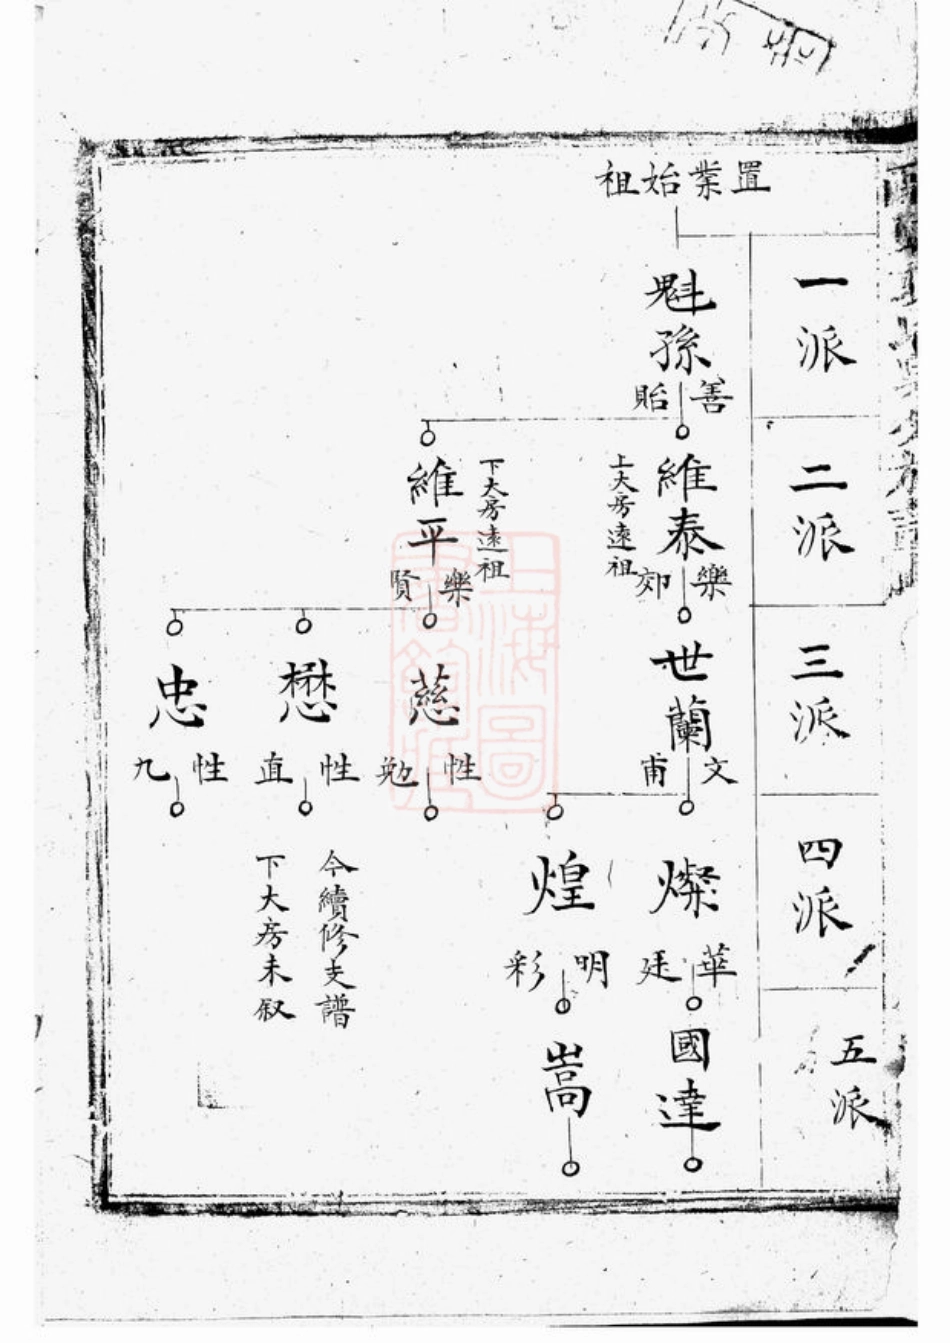 置業始祖
一派
魁孫
善貽
二派
維泰
樂郊
上大房遠祖
維平
樂賢
下大房遠祖
三派
世蘭
文甫
慈
性勉
懋
性直
忠
性九
四派
燦
華廷
煌
明彩
今續修支譜
下大房未叙
五派
國達
嵩
上海圖
書館藏